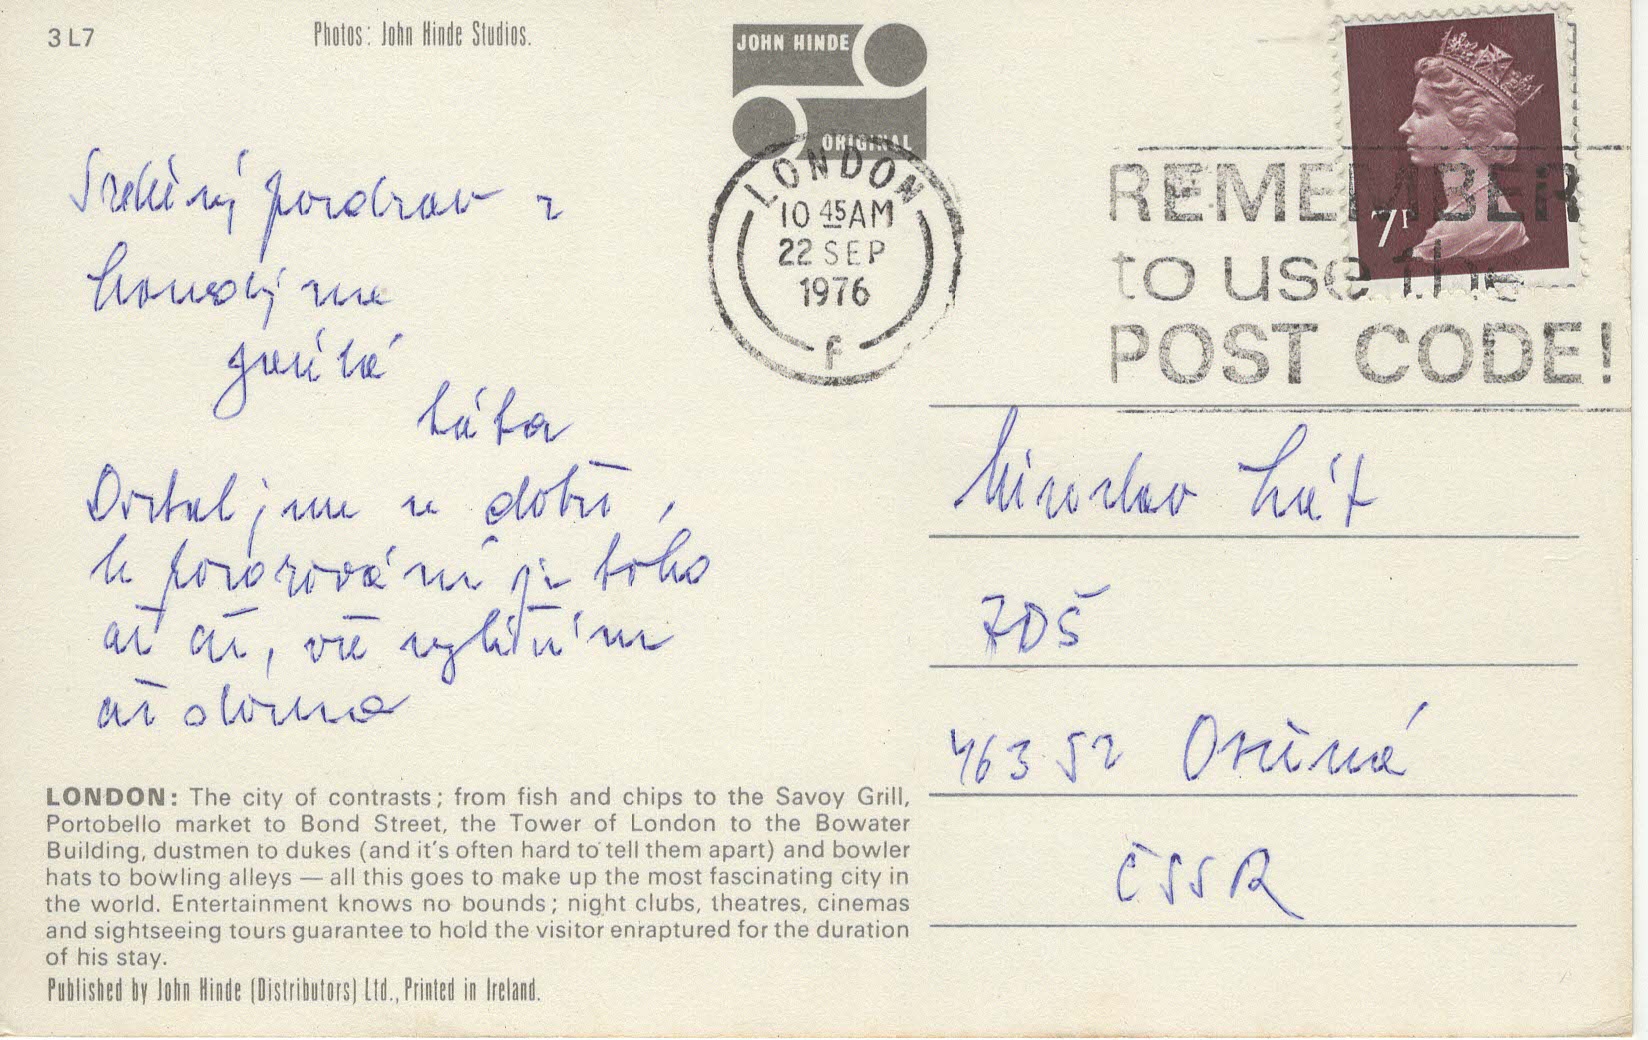 3 L7
Photos: John Hinde Studios.
JOHN HINDE
ORIGINAL
LONDON
10 45 AM
22 SEP
1976
F
REMEMBER
to use the
POST CODE!
7P
Srdečný pozdrav z
Londýna
táta
Dostal jsem se dobře,
k pozorování je toho
až až, vše vylíčím
až doma
Miroslav
ZDŠ
463 52 Osečná
ČSSR
LONDON: The city of contrasts; from fish and chips to the Savoy Grill,
Portobello market to Bond Street, the Tower of London to the Bowater
Building, dustmen to dukes (and it's often hard to tell them apart) and bowler
hats to bowling alleys — all this goes to make up the most fascinating city in
the world. Entertainment knows no bounds; night clubs, theatres, cinemas
and sightseeing tours guarantee to hold the visitor enraptured for the duration
of his stay.
Published by John Hinde (Distributors) Ltd., Printed in Ireland.